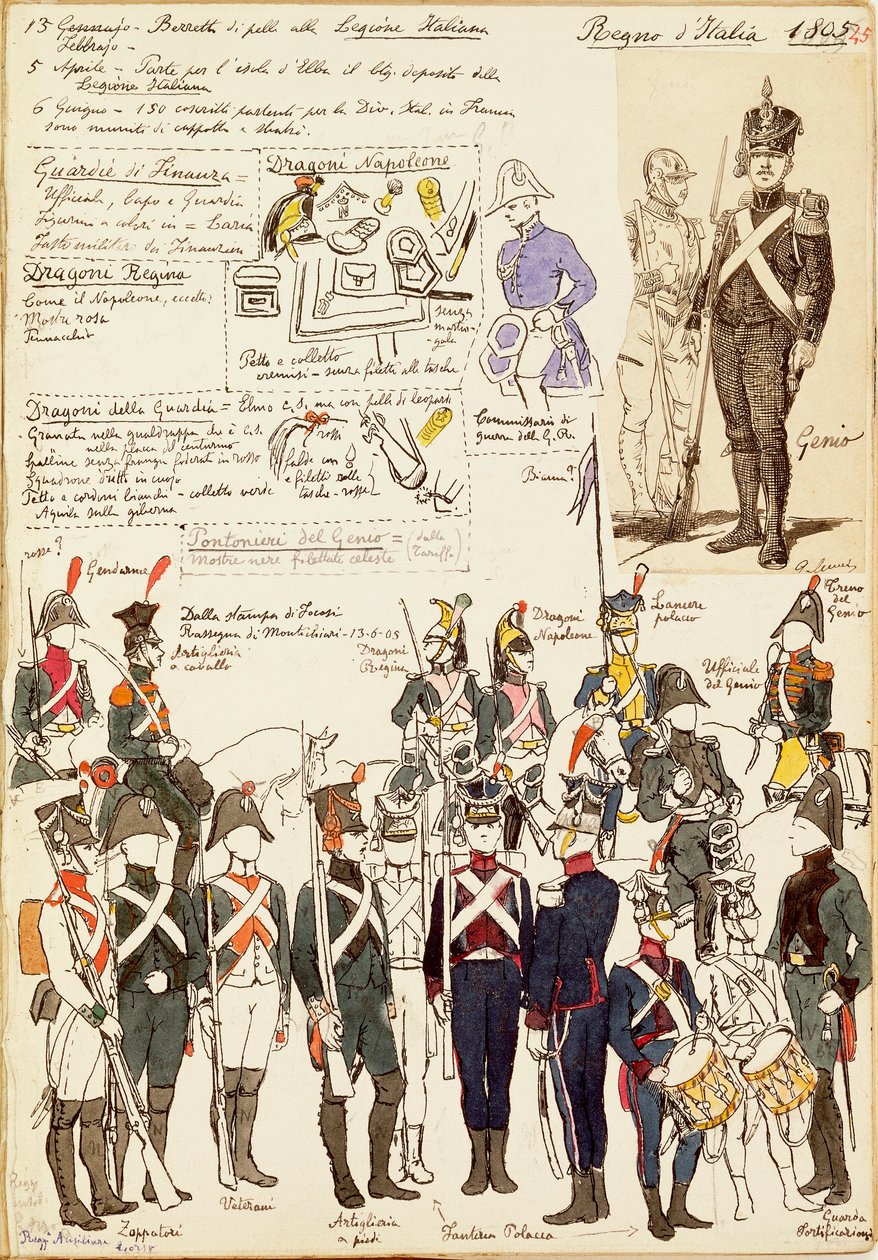 13 Gennajo - Berretta di pelle alla Legione Italiana
Febbrajo -
5 Aprile - Parte per l'isola d'Elba il btg. deposito della
Legione Italiana
6 Giugno - 150 coscritti partenti per la Div. Ital. in Francia
sono muniti di cappotto e
Regno d'Italia 1805
45
Guardie di Finanza =
Ufficiale, Capo e Guardia
Figurini a colori in =
militare dei Finanzieri
Dragoni Napoleone
N
senza
martin-
gala
Petto e colletto
cremisi - senza filetti alle tasche
Dragoni Regina
Come il Napoleone, eccetto:
Mostre rosa
Pennacchio
Commissario di
guerra dell. G. R.
Genio
Dragoni della Guardia = Elmo c.s. ma con pelle di leopardo
Granata nella gualdrappa che è c.s.
" nella placca del centurino
Spalline senza frangia foderata in rosso
Squadrone dritto in cuojo
Petto e cordoni bianchi - colletto verde
Aquila sulla giberna
rossi
falde con
e filetti
tasche - rosse
Bianca?
Pontonieri del Genio = (dalla
Mostre nere filettate celeste Tariffa)
rosse?
Gendarme
Dalla stampa di Focosi
Rassegna di Montichiari - 13-6-05
Artiglieria
a cavallo
Dragoni
Regina
Dragoni
Napoleone
Lancere
polacco
Ufficiale
del Genio
Treno
del
Genio
Zappatori
Veterani
Artiglieria
a piedi
Fanteria Polacca
Guardia
Fortificazioni